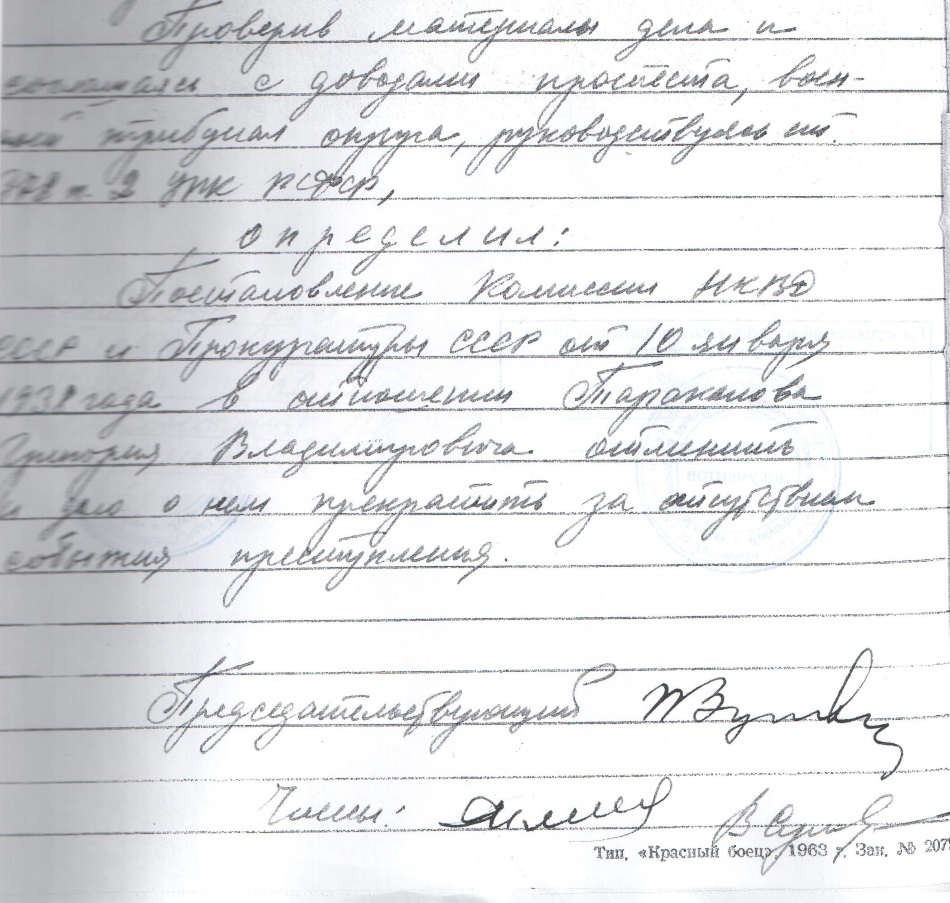 Проверив материалы дела и
соглашаясь с доводами протеста, воен-
ный трибунал округа, руководствуясь ст.
378 п. 2 УПК РСФСР,
определил:
Постановление Комиссии НКВД
СССР и Прокуратуры СССР от 10 января
1938 года в отношении Тараканова
Григория Владимировича отменить
и дело о нем прекратить за отсутствием
события преступления.
Председательствующий
Члены:
Тип. «Красный боец», 1963 г. Зак. № 207